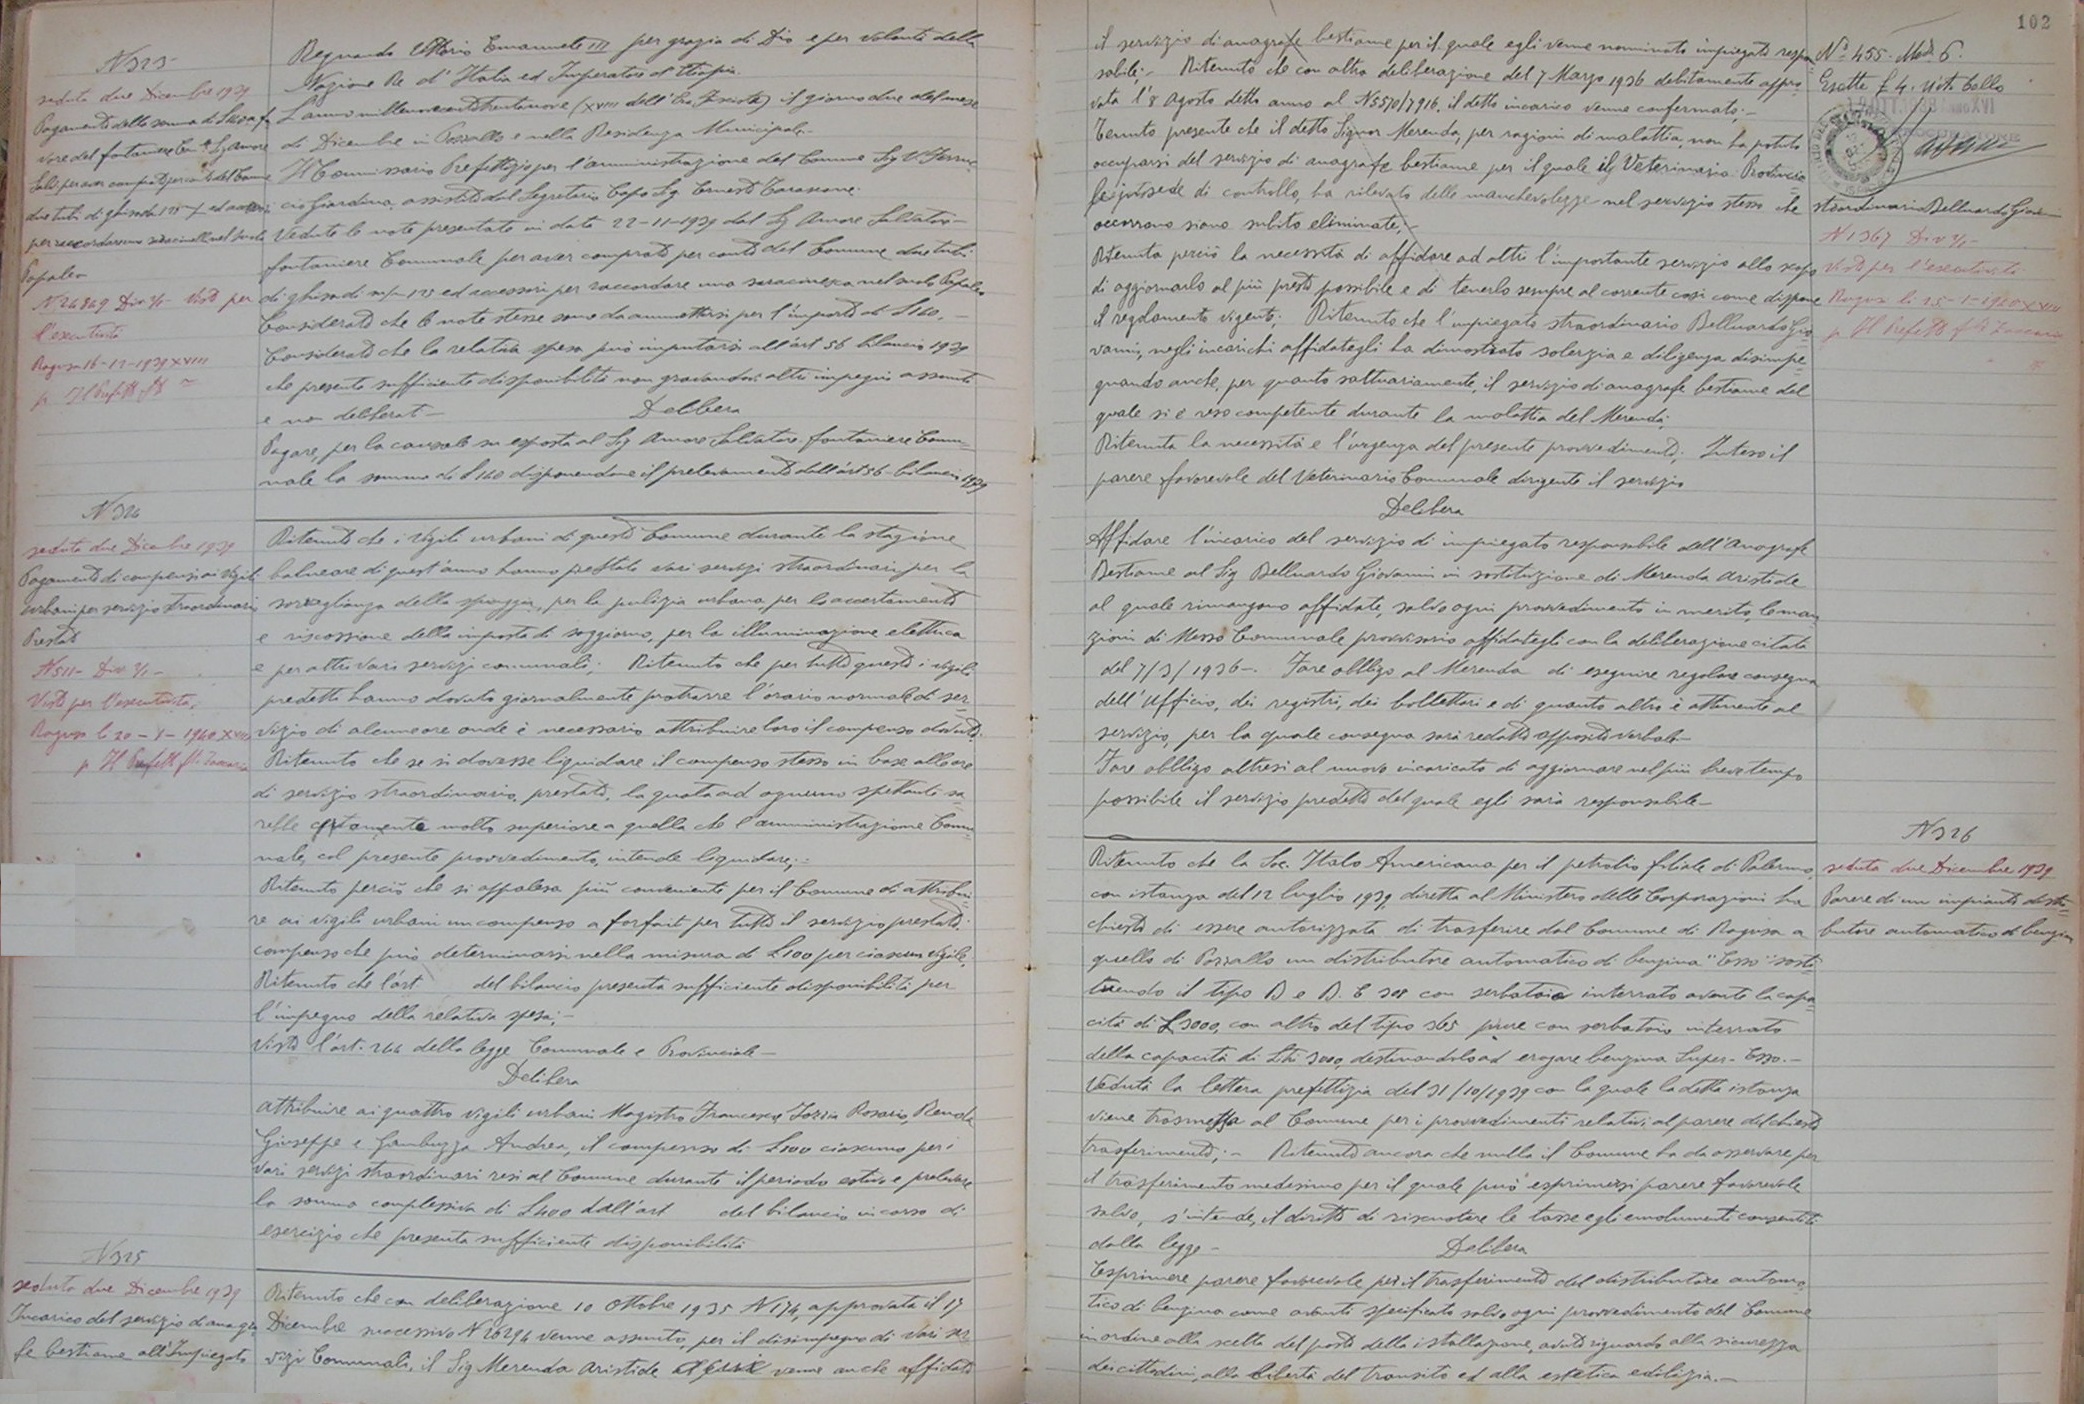 N 323
seduta due Dicembre 1939
Pagamento della somma di L 140 a fa
vore del fontaniere Com.le Sig Amore
Salv. per aver comprato per conto del Comune
due tubi di ghisa da 125 m/m ed accessori
per raccordare una saracinesca nel suolo
Popaleo
N 24849 Div 4/1 - Visto per
l'esecutività
Ragusa 16-12-1939 XVIII
p. Il Prefetto f.to
Regnando Vittorio Emanuele III per grazia di Dio e per volontà della
Nazione Re d'Italia ed Imperatore d'Etiopia.
L'anno millenovecentotrentanove (XVIII dell'Era Fascista) il giorno due del mese
di Dicembre in Pozzallo e nella Residenza Municipale.-
Il Commissario Prefettizio per l'amministrazione del Comune Sig V. Ferruc
cio Giardina, assistito dal Segretario Capo Sig Ernesto Tarascone.
Vedute le note presentate in data 22-11-1939 dal Sig Amore Salvatore
fontaniere Comunale per aver comprato per conto del Comune due tubi
di ghisa di m/m 125 ed accessori per raccordare una saracinesca nel suolo Popaleo
Considerato che le note stesse sono da ammettersi per l'importo di L 140.-
Considerato che la relativa spesa può imputarsi all'art 56 bilancio 1939
che presenta sufficiente disponibilità non gravandovi altri impegni assunti
e non deliberati -
Delibera
Pagare, per la causale su esposta al Sig Amore Salvatore fontaniere Comu=
nale la somma di L 140 disponendone il prelevamento dall'art 56 - bilancio 1939
N 324
seduta due Dicembre 1939
Pagamento di compensi ai Vigili
urbani per servizio straordinario
Prestato
N 511 - Div 4/1 -
Visto per l'esecutività,
Ragusa lì 20-1-1940 XVIII
p. Il Prefetto f.to Zaccaria
Ritenuto che i vigili urbani di questo Comune durante la stagione
balneare di quest'anno hanno prestato vari servizi straordinari per la
sorveglianza della spiaggia, per la pulizia urbana, per lo accertamento
e riscossione della imposta di soggiorno, per la illuminazione elettrica
e per altri vari servizi comunali; Ritenuto che per tutto questo i vigili
predetti hanno dovuto giornalmente protrarre l'orario normale di ser=
vizio di alcune ore onde è necessario attribuire loro il compenso dovuto.
Ritenuto che se si dovesse liquidare il compenso stesso in base alle ore
di servizio straordinario prestato, la quota ad ognuno spettante sa=
rebbe certamente molto superiore a quella che l'amministrazione Comu=
nale, col presente provvedimento, intende liquidare;-
Ritenuto perciò che si appalesa più conveniente per il Comune di attribui=
re ai vigili urbani un compenso a forfait per tutto il servizio prestato;
compenso che può determinarsi nella misura di L 100 per ciascun vigile.
Ritenuto che l'art del bilancio presenta sufficiente disponibilità per
l'impegno della relativa spesa;-
Visto l'art. 244 della legge Comunale e Provinciale -
Delibera
attribuire ai quattro vigili urbani Magistro Francesco, Iozzia Rosario, Renda
Giuseppe e Gambuzza Andrea, il compenso di L 100 ciascuno per i
vari servizi straordinari resi al Comune durante il periodo estivo e prelevare
la somma complessiva di L 400 dall'art del bilancio in corso di
esercizio che presenta sufficiente disponibilità
N 325
seduta due Dicembre 1939
Incarico del servizio di anagra
fe bestiame all'Impiegato
Ritenuto che con deliberazione 10 Ottobre 1935 N 174, approvata il 17
Dicembre successivo N 26294 venne assunto, per il disimpegno di vari ser
vizi Comunali, il Sig Merenda Aristide al quale venne anche affidato
102
il servizio di anagrafe bestiame per il quale egli venne nominato impiegato respon
sabile;- Ritenuto che con altra deliberazione del 7 Marzo 1936 debitamente appro=
vata l'8 agosto detto anno al N 5570/7916. il detto incarico venne confermato;-
Tenuto presente che il detto Signor Merenda, per ragioni di malattia, non ha potuto
occuparsi del servizio di anagrafe bestiame per il quale il Veterinario Provincia=
le in sede di controllo, ha rilevato delle manchevolezze nel servizio stesso che
occorrono siano subito eliminate;-
Ritenuta perciò la necessità di affidare ad altri l'importante servizio allo scopo
di aggiornarlo al più presto possibile e di tenerlo sempre al corrente così come dispone
il regolamento vigente; Ritenuto che l'impiegato straordinario Belluardo Gio
vanni, negli incarichi affidategli ha dimostrato solerzia e diligenza disimpe=
gnando anche, per quanto saltuariamente, il servizio di anagrafe bestiame del
quale si è reso competente durante la malattia del Merenda;
Ritenuta la necessità e l'urgenza del presente provvedimento; Inteso il
parere favorevole del Veterinario Comunale dirigente il servizio
Delibera
Affidare l'incarico del servizio di impiegato responsabile dell'Anagrafe
Bestiame al Sig Belluardo Giovanni in sostituzione di Merenda Aristide
al quale rimangono affidate, salvo ogni provvedimento in merito, le man
zioni di Messo Comunale provvisorio affidategli con la deliberazione citata
del 7/3/1936 -. Fare obbligo al Merenda di eseguire regolare consegna
dell'Ufficio, dei registri, dei bollettari e di quanto altro è attinente al
servizio, per la quale consegna sarà redatto apposito verbale -
Fare obbligo altresì al nuovo incaricato di aggiornare nel più breve tempo
possibile il servizio predetto del quale egli sarà responsabile -
N° 455. Mod 6.
Esatte £ 4. diritti bollo
straordinario Belluardo Giovanni
N 1367 Div 4/1 -
Visto per l'esecutività
Ragusa lì 25-1-1940 XVIII
p. Il Prefetto f.to Zaccaria
N 326
seduta due Dicembre 1939
Parere di un impianto distri=
butore automatico di benzina
Ritenuto che la Soc. Italo Americana per il petrolio filiale di Palermo,
con istanza del 12 luglio 1939, diretta al Ministero delle Corporazioni ha
chiesto di essere autorizzata di trasferire dal Comune di Ragusa a
quello di Pozzallo un distributore automatico di benzina "Esso" sosti
tuendo il tipo B e B. E 308 con serbatoio interrato avente la capa=
cità di L 3000, con altro del tipo 365 pure con serbatoio interrato
della capacità di Ltri 3000, destinandolo ad erogare benzina Super-Esso.-
Veduta la lettera prefettizia del 31/10/1939 con la quale la detta istanza
viene trasmessa al Comune per i provvedimenti relativi al parere del chiesto
trasferimento;- Ritenuto ancora che nulla il Comune ha da osservare per
il trasferimento medesimo per il quale può esprimersi parere favorevole
salvo, s'intende, il diritto di riscuotere le tasse e gli emolumenti consentiti
dalla legge -
Delibera
Esprimere parere favorevole per il trasferimento del distributore automa=
tico di benzina come avanti specificato salvo ogni provvedimento del Comune
in ordine alla scelta del posto della istallazione, avuto riguardo alla sicurezza
dei cittadini, alla libertà del transito ed alla estetica edilizia.-